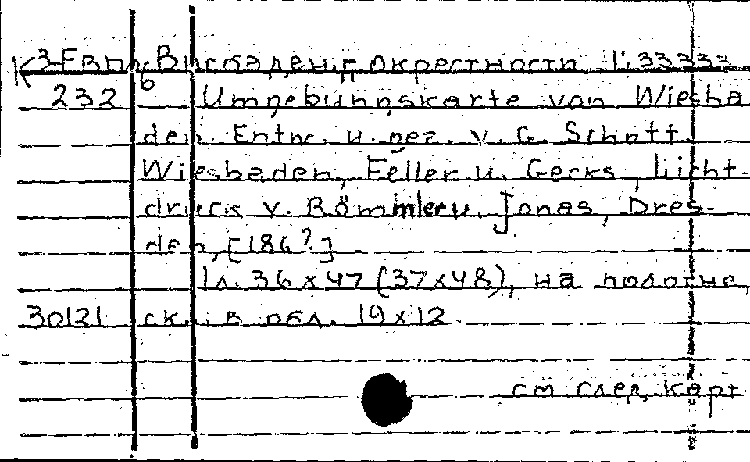 К 3-Евр Висбаден, окрестности 1:33333
232 6 Umgebungskarte von Wiesba
den. Entw. u. gez. v. G. Schott.
Wiesbaden, Feller u. Gecks, Licht-
druck v. Römmler u. Jonas, Dres-
den, [186?]
1 л. 36 x 47 (37x48), на полотне,
30121 скл. в обл. 19x12.
см след. карт